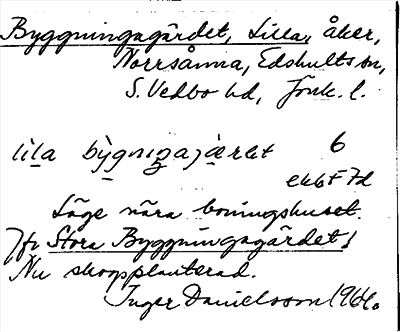 Byggningagärdet, Lilla, åker,
Norrsånna, Edshults sn,
S. Vedbo hd, Jönk. l.
lila bygningajærlet 6
ek6F7d
Läge nära boningshuset.
Jfr Stora Byggningagärdet!
Nu skogsplanterad.
Inger Danielsson 1964.